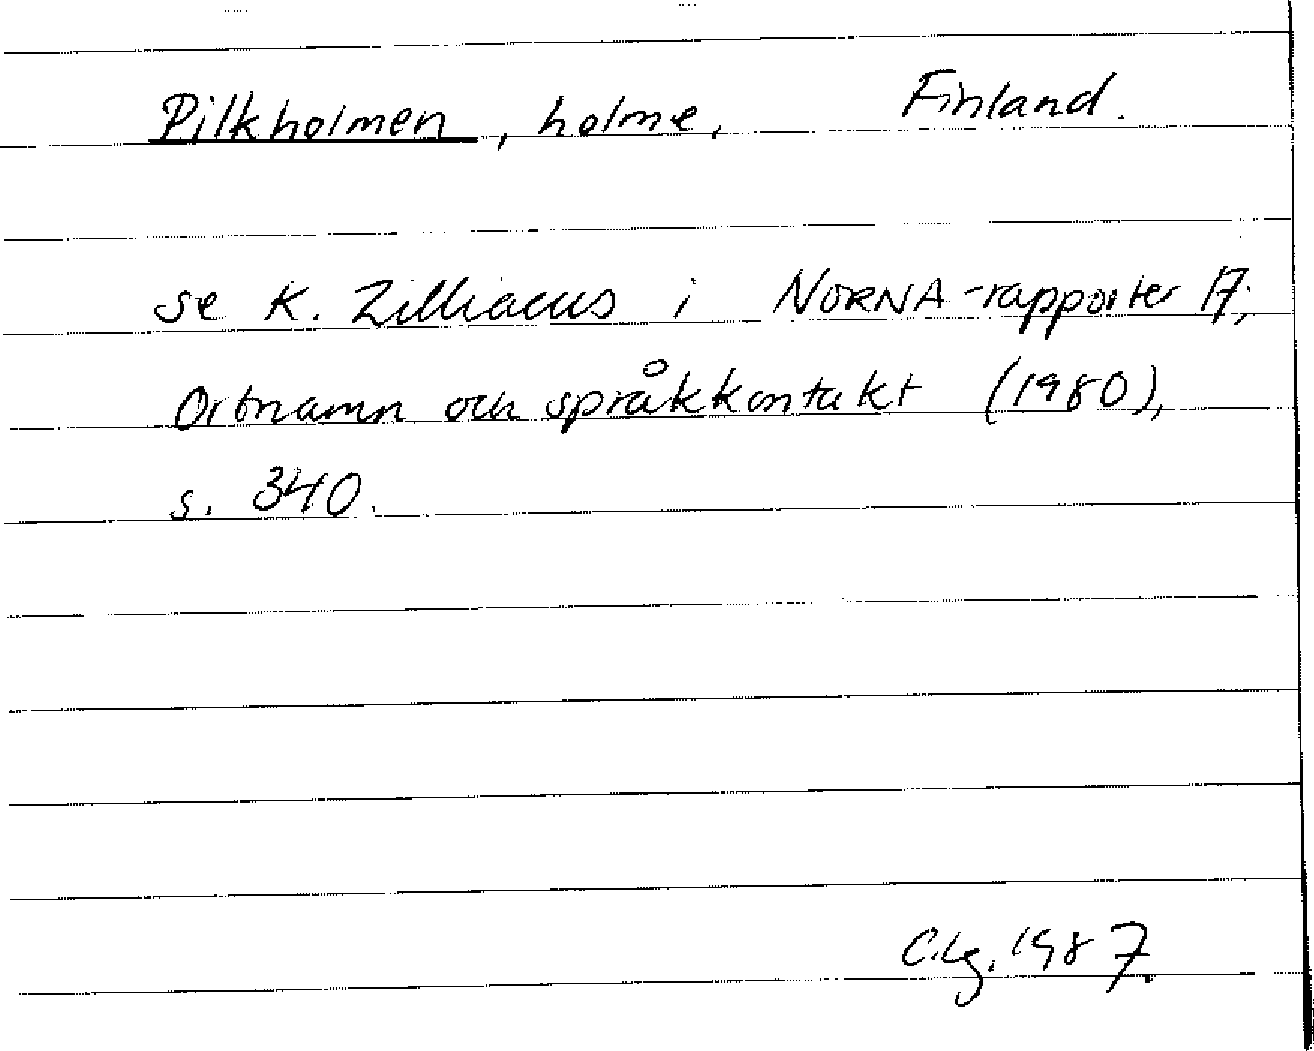 Pilkholmen, holme, Finland.
se K. Zilliacus i NORNA-rapporter 17;
Ortnamn och språkkontakt (1980),
s. 340.
C.Lg. 1987.